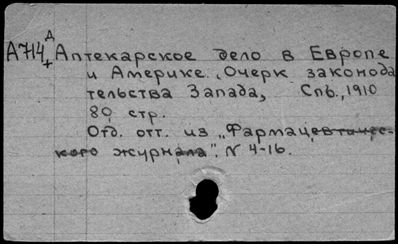 Д
А714 Аптекарское дело в Европе
+
и Америке. Очерк законода
тельства Запада, Спб., 1910
80 стр.
Отд. отт. из „Фармацевтичес-
кого журнала". N 4-16.